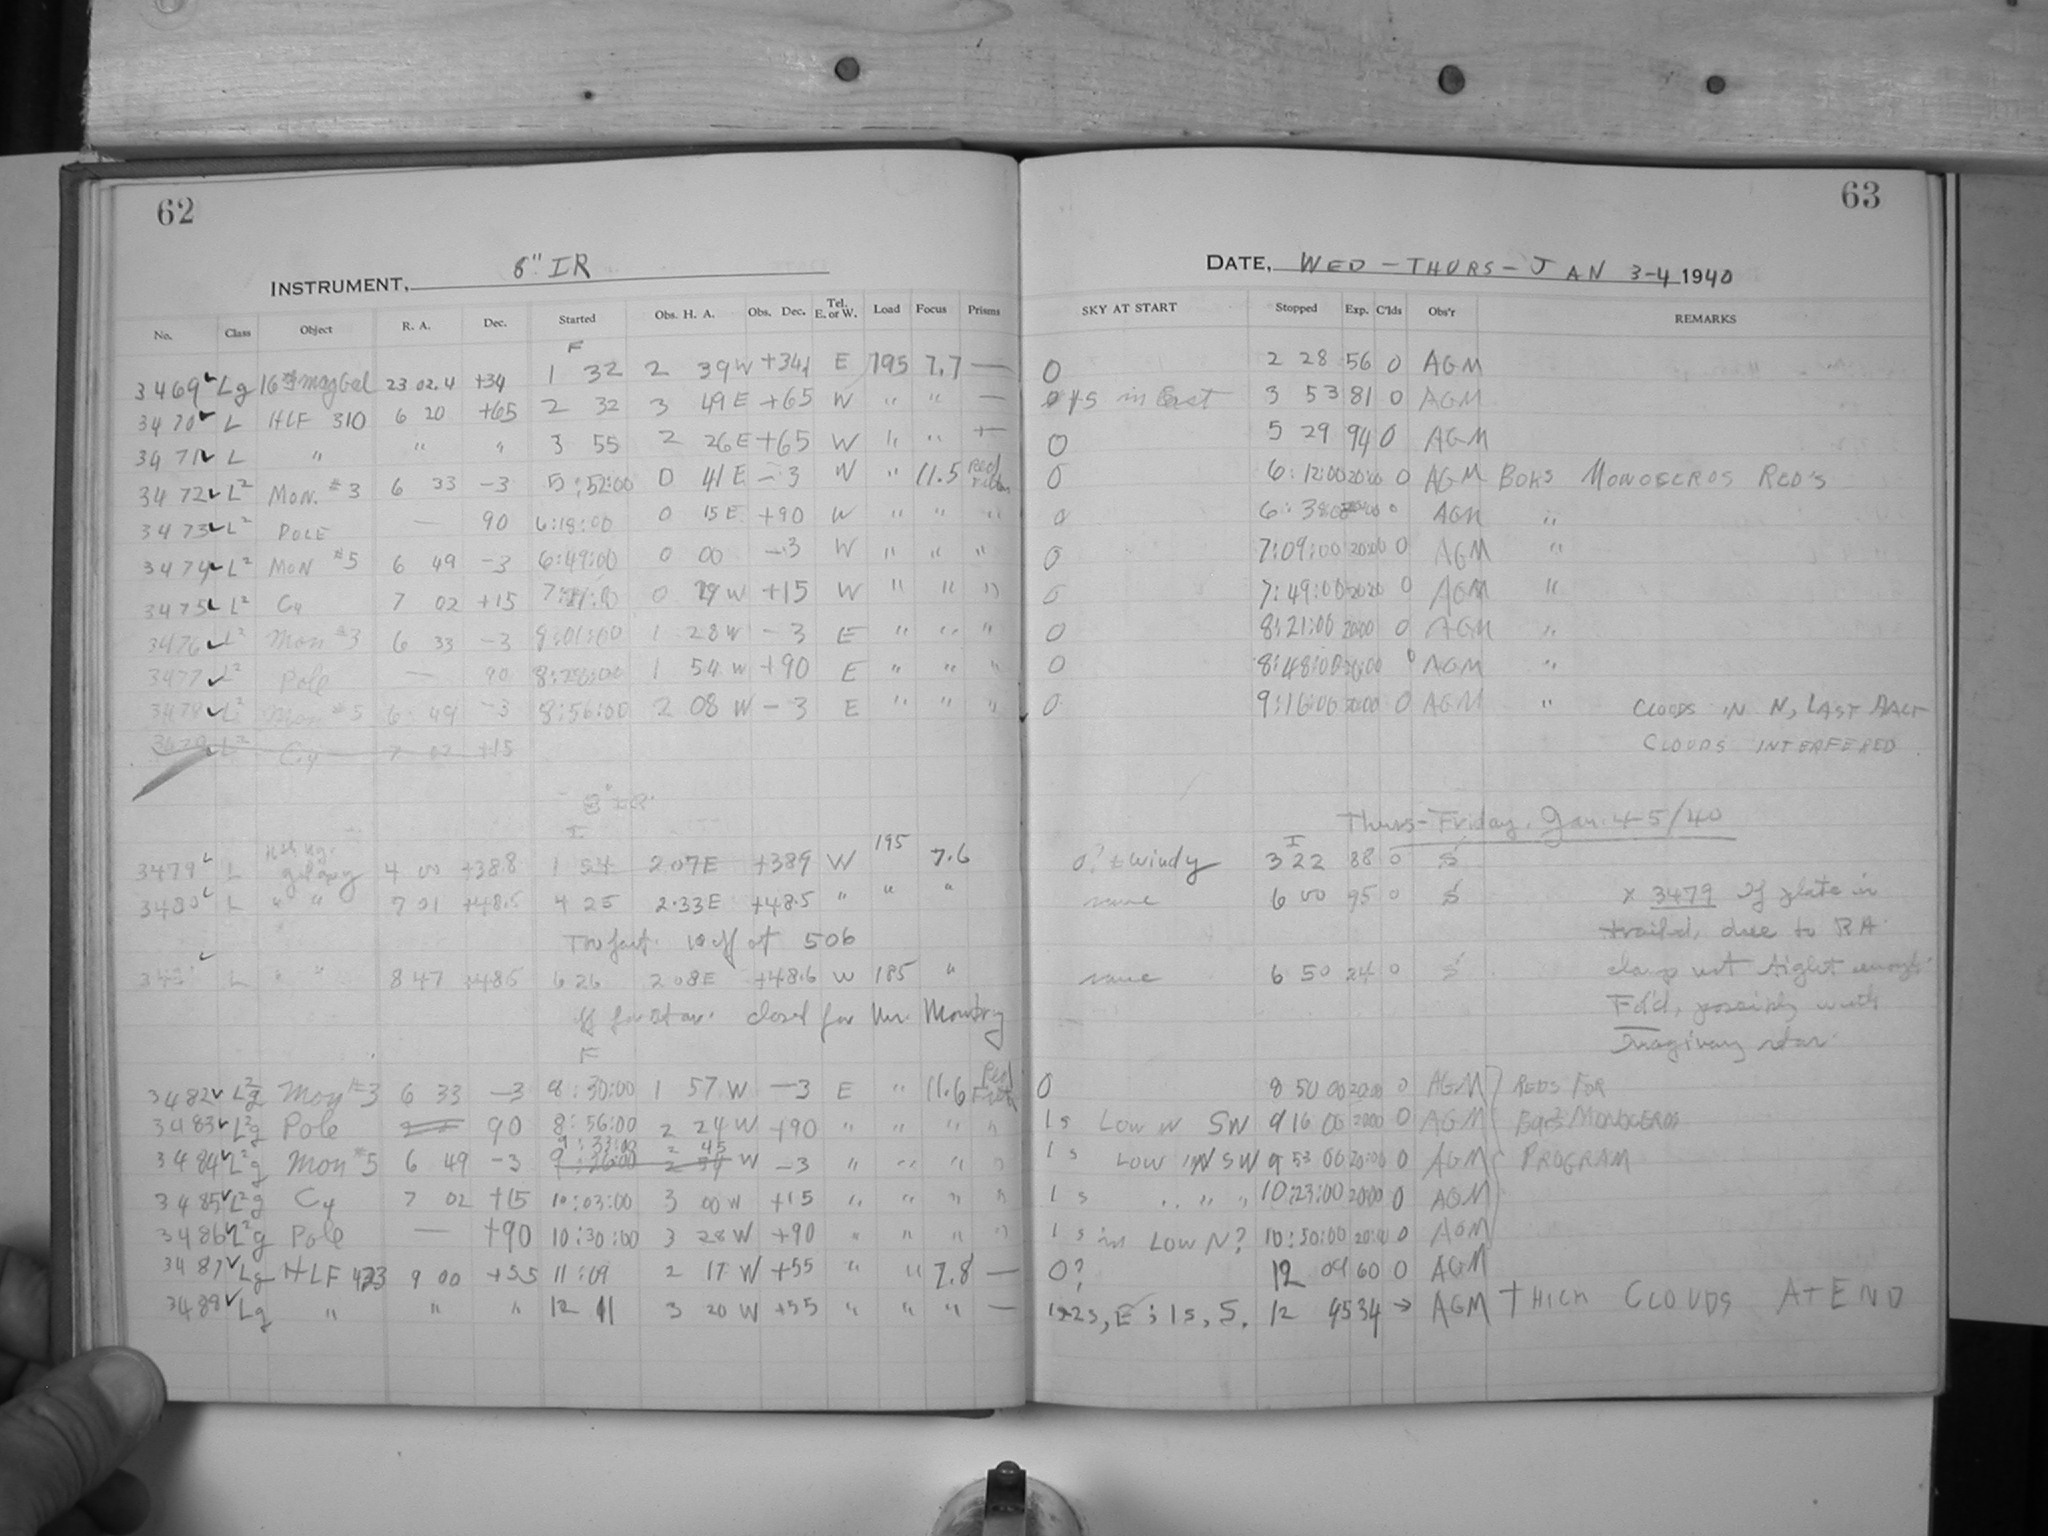 62
INSTRUMENT, 8" IR
No. Class Object R. A. Dec. Started Obs. H. A. Obs. Dec. Tel. E. or W. Load Focus Prisms
F
3469 Lg 16th mag Gal 23 02.4 +34 1 32 2 39 W +34 E 195 7.7 —
3470 L HLF 310 6 20 +65 2 32 3 49 E +65 W " " —
3471 L " " " 3 55 2 26 E +65 W " " —
3472 L² MON. #3 6 33 -3 5:52:00 0 41 E -3 W " 11.5 Red
3473 L² POLE — 90 6:18:00 0 15 E +90 W " " "
3474 L² MON #5 6 49 -3 6:49:00 0 00 -3 W " " "
3475 L² C4 7 02 +15 0 29 W +15 W " " "
3476 L² Mon #3 6 33 -3 8:01:00 1 28 W -3 E " " "
3477 L² Pole — 90 8:28:00 1 54 W +90 E " " "
L² Mon #5 6 49 -3 8:56:00 2 08 W -3 E " " "
3479 L² C4 7 02 +15
I
3479 L galaxy 4 00 +38.8 1 54 2.07 E +389 W 195 7.6
3480 L " " 7 01 +48.5 4 25 2.33 E +48.5 " " "
at 506
L " " 8 47 +48.5 6 26 2 08 E +48.6 W 185 "
closed for Mr.
F
3482 L²g Mon #3 6 33 -3 8:30:00 1 57 W -3 E " 11.6 Red
3483 L²g Pole 90 8:56:00 2 24 W +90 " " " "
3484 L²g Mon #5 6 49 -3 9:33:00 2 45 W -3 " " " "
3485 L²g C4 7 02 +15 10:03:00 3 00 W +15 " " " "
3486 L²g Pole — +90 10:30:00 3 28 W +90 " " " "
3487 Lg HLF 423 9 00 +55 11:09 2 17 W +55 " " 7.8 —
3488 Lg " " " 12 11 3 20 W +55 " " " —
63
DATE, WED - THURS - JAN 3-4 1940
SKY AT START Stopped Exp. C'lds Obs'r REMARKS
0 2 28 56 0 AGM
in East 3 53 81 0 AGM
0 5 29 94 0 AGM
0 6:12:00 20:00 0 AGM BOKS MONOCEROS RED'S
0 6:38:00 0 AGM "
0 7:09:00 20:00 0 AGM "
0 7:49:00 20:20 0 AGM "
0 8:21:00 20:00 0 AGM "
0 8:48:00 20:00 0 AGM "
0 9:16:00 20:00 0 AGM " CLOUDS IN N, LAST HALF
CLOUDS INTERFERED
Thurs-Friday. Jan. 4-5/40
I
0? + windy 3 22 88 0 S
same 6 00 95 0 S x 3479 If plate is
trailed, due to RA
same 6 50 24 0 S clamp not tight enough
F'd'd, possibly with
Imaginary star.
0 8 50 00 20:00 0 AGM REDS FOR
1s LOW N SW 9 16 00 20:00 0 AGM BOK'S MONOCEROS
1s LOW IN SW 9 53 00 20:00 0 AGM PROGRAM
1s " " " 10:23:00 20:00 0 AGM
1s in LOW N? 10:50:00 20:00 0 AGM
0? 12 09 60 0 AGM
E; 1s, S. 12 45 34 → AGM THICK CLOUDS AT END